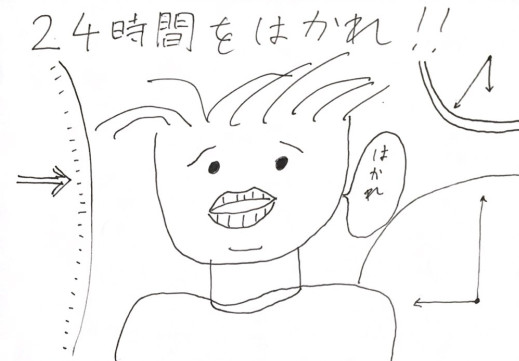 24時間をはかれ!!
はかれ